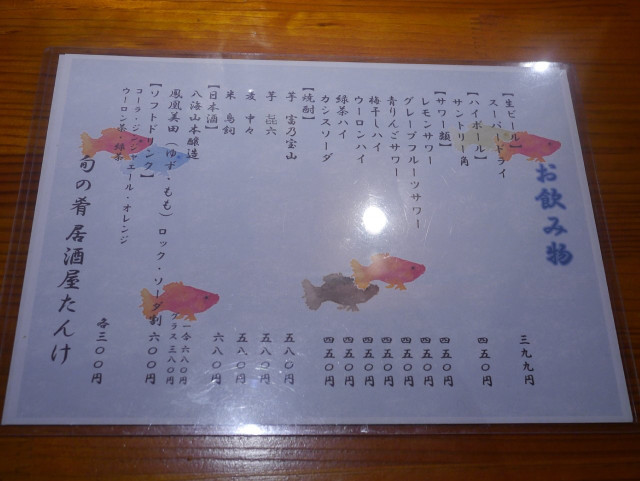 お飲み物
【生ビール】
スーパードライ 三九九円
【ハイボール】
サントリー角 四五〇円
【サワー類】
レモンサワー 四五〇円
グレープフルーツサワー 四五〇円
青りんごサワー 四五〇円
梅干しハイ 四五〇円
ウーロンハイ 四五〇円
緑茶ハイ 四五〇円
カシスソーダ 四五〇円
【焼酎】
芋 富乃宝山 五八〇円
芋 㐂六 五八〇円
麦 中々 五八〇円
米 鳥飼 六八〇円
【日本酒】
八海山本醸造 一合 六八〇円
グラス 三八〇円
鳳凰美田(ゆず・もも)ロック・ソーダ割 六〇〇円
【ソフトドリンク】
コーラ・ジンジャエール・オレンジ
ウーロン茶・緑茶 各三〇〇円
旬の肴 居酒屋たんけ